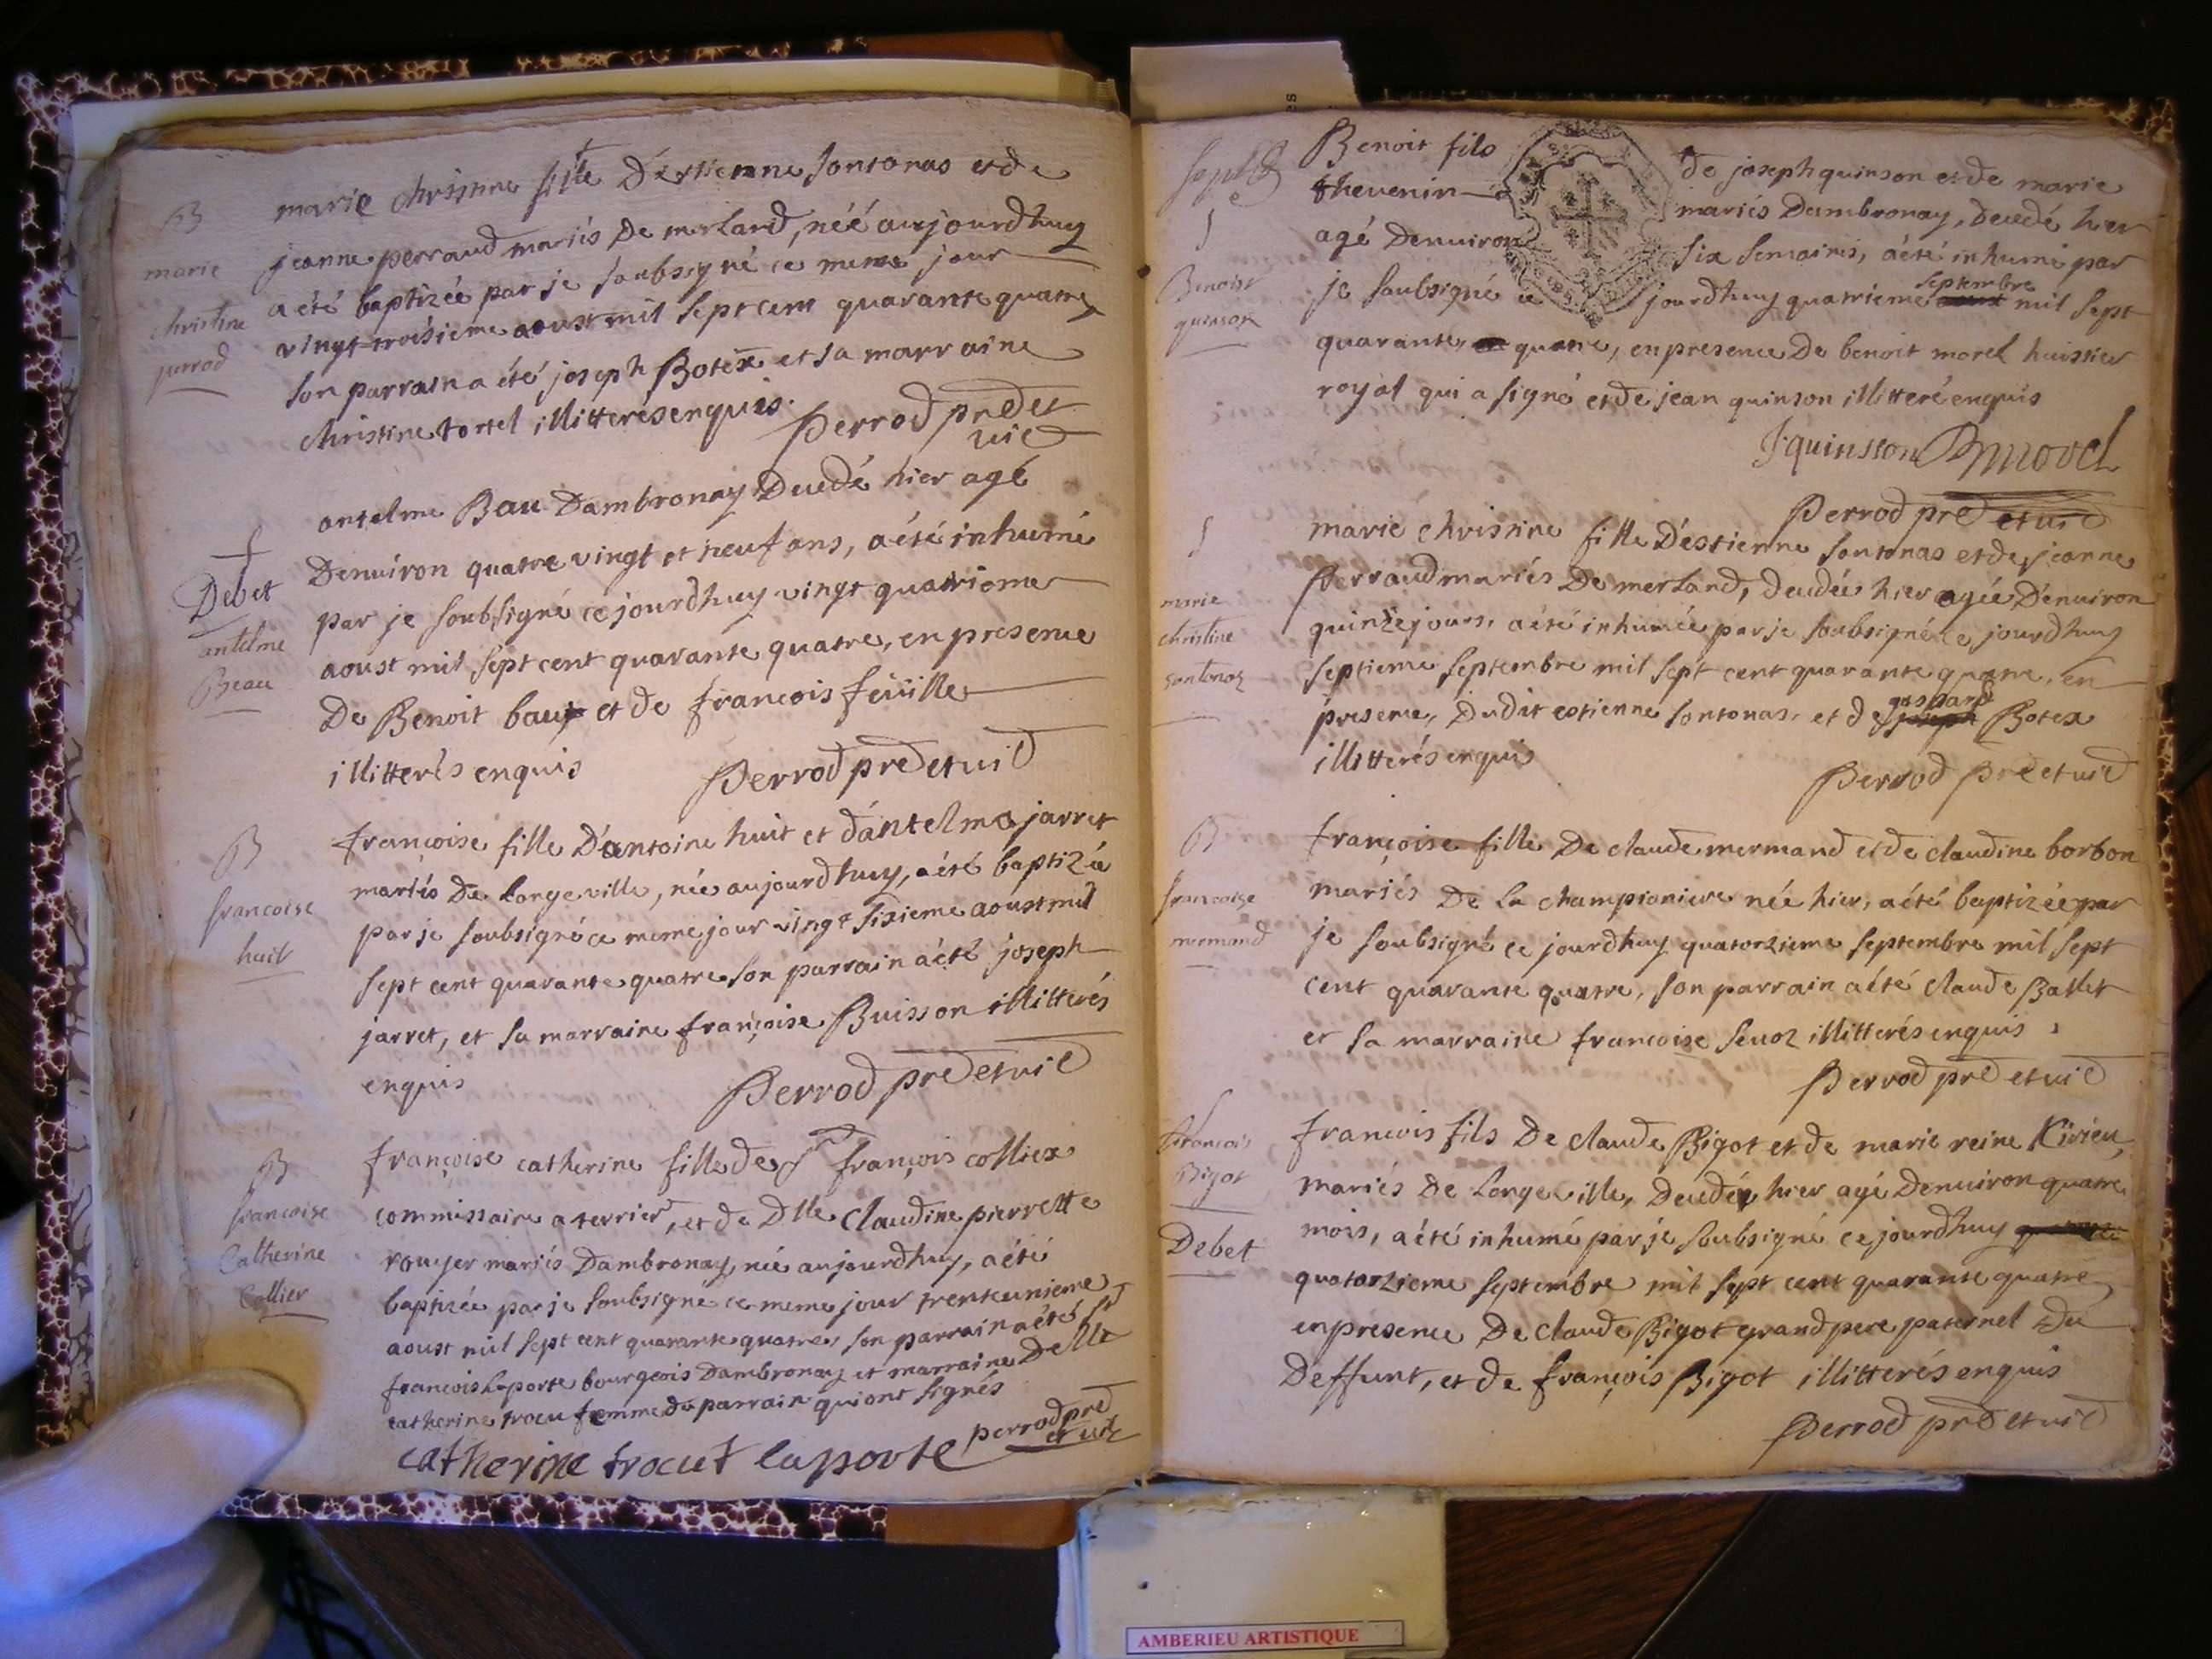 B
marie
christine
perrod
marie christine fille D'estienne sontonas et de
jeanne perraud mariés De merland, néé aujourdhuy
a été baptizée par je soubsigné ce meme jour
vingt troisieme aoust mil sept cent quarante quatre,
son parrain a été joseph Botex et sa marraine
christine tortel illitterés enquis.
Perrod pre et
vic
†
Debet
antelme
Beau
antelme Bau Dambronay Decedé hier agé
Denuiron quatre vingt et neuf ans, a été inhumé
par je soubsigné ce jourdhuy vingt quatrieme
aoust mil sept cent quarante quatre, en presence
De Benoit bau et de francois feüille
illitterés enquis
Perrod pre et vic
B
francoise
huit
françoise fille D'antoine huit et d'antelme jarret
mariés De Longeville, née aujourdhuy, a été baptizée
par je soubsigné ce meme jour vingt sixieme aoust mil
sept cent quarante quatre son parrain a été joseph
jarret, et sa marraine françoise Buisson illitterés
enquis
Perrod pre et vic
B
francoise
Catherine
Collier
françoise catherine fille de sr françois colliex
commissaire a terrier, et de Dlle Claudine pierrette
rouyer mariés Dambronay, née aujourdhuy, a été
baptizée par je soubsigné ce meme jour trenteunieme
aoust mil sept cent quarante quatre, son parrain a été sr
francois Laporte bourgeois Dambronay et marraine Delle
catherine trocu femme du parrain qui ont signés
perrod pre
et vic
catherine trocut laporte
sept
Benoist
quinson
Benoit fils de joseph quinson et de marie
thevenin mariés Dambronay, decedé hier
agé Denuiron six semaines, a été inhumé par
je soubsigné ce jourdhuy quatrieme septembre mil sept
quarante quatre, en presence De benoit morel huissier
royal qui a signé et de jean quinson illitteré enquis
J quinsson Bmorel
Perrod pre et vic
marie
christine
sontonas
marie christine fille D'estienne sontonas et de jeanne
Perraud mariés De merland, decedée hier agée Denuiron
quinze jours, a été inhumée par je soubsigné ce jourdhuy
septieme septembre mil sept cent quarante quatre, en
presence, Dudit estienne sontonas, et de gaspard Botex
illitterés enquis
Perrod pre et vic
B
francoise
mermand
françoise fille De claude mermand et de claudine borbon
mariés De la championiere née hier, a été baptizée par
je soubsigné ce jourdhuy quatorzieme septembre mil sept
cent quarante quatre, son parrain a été claude Ballet
et sa marraine francoise seuoz illitterés enquis
Perrod pre et vic
francois
Bigot
Debet
francois fils De claude Bigot et de marie reine Kirieu,
mariés De Longeville, Decedé hier agé Denuiron quatre
mois, a été inhumé par je soubsigné ce jourdhuy
quatorzieme septembre mil sept cent quarante quatre
en presence De claude Bigot grand pere paternel Du
Deffunt, et de françois Bigot illitterés enquis
Perrod pre et vic
AMBERIEU ARTISTIQUE